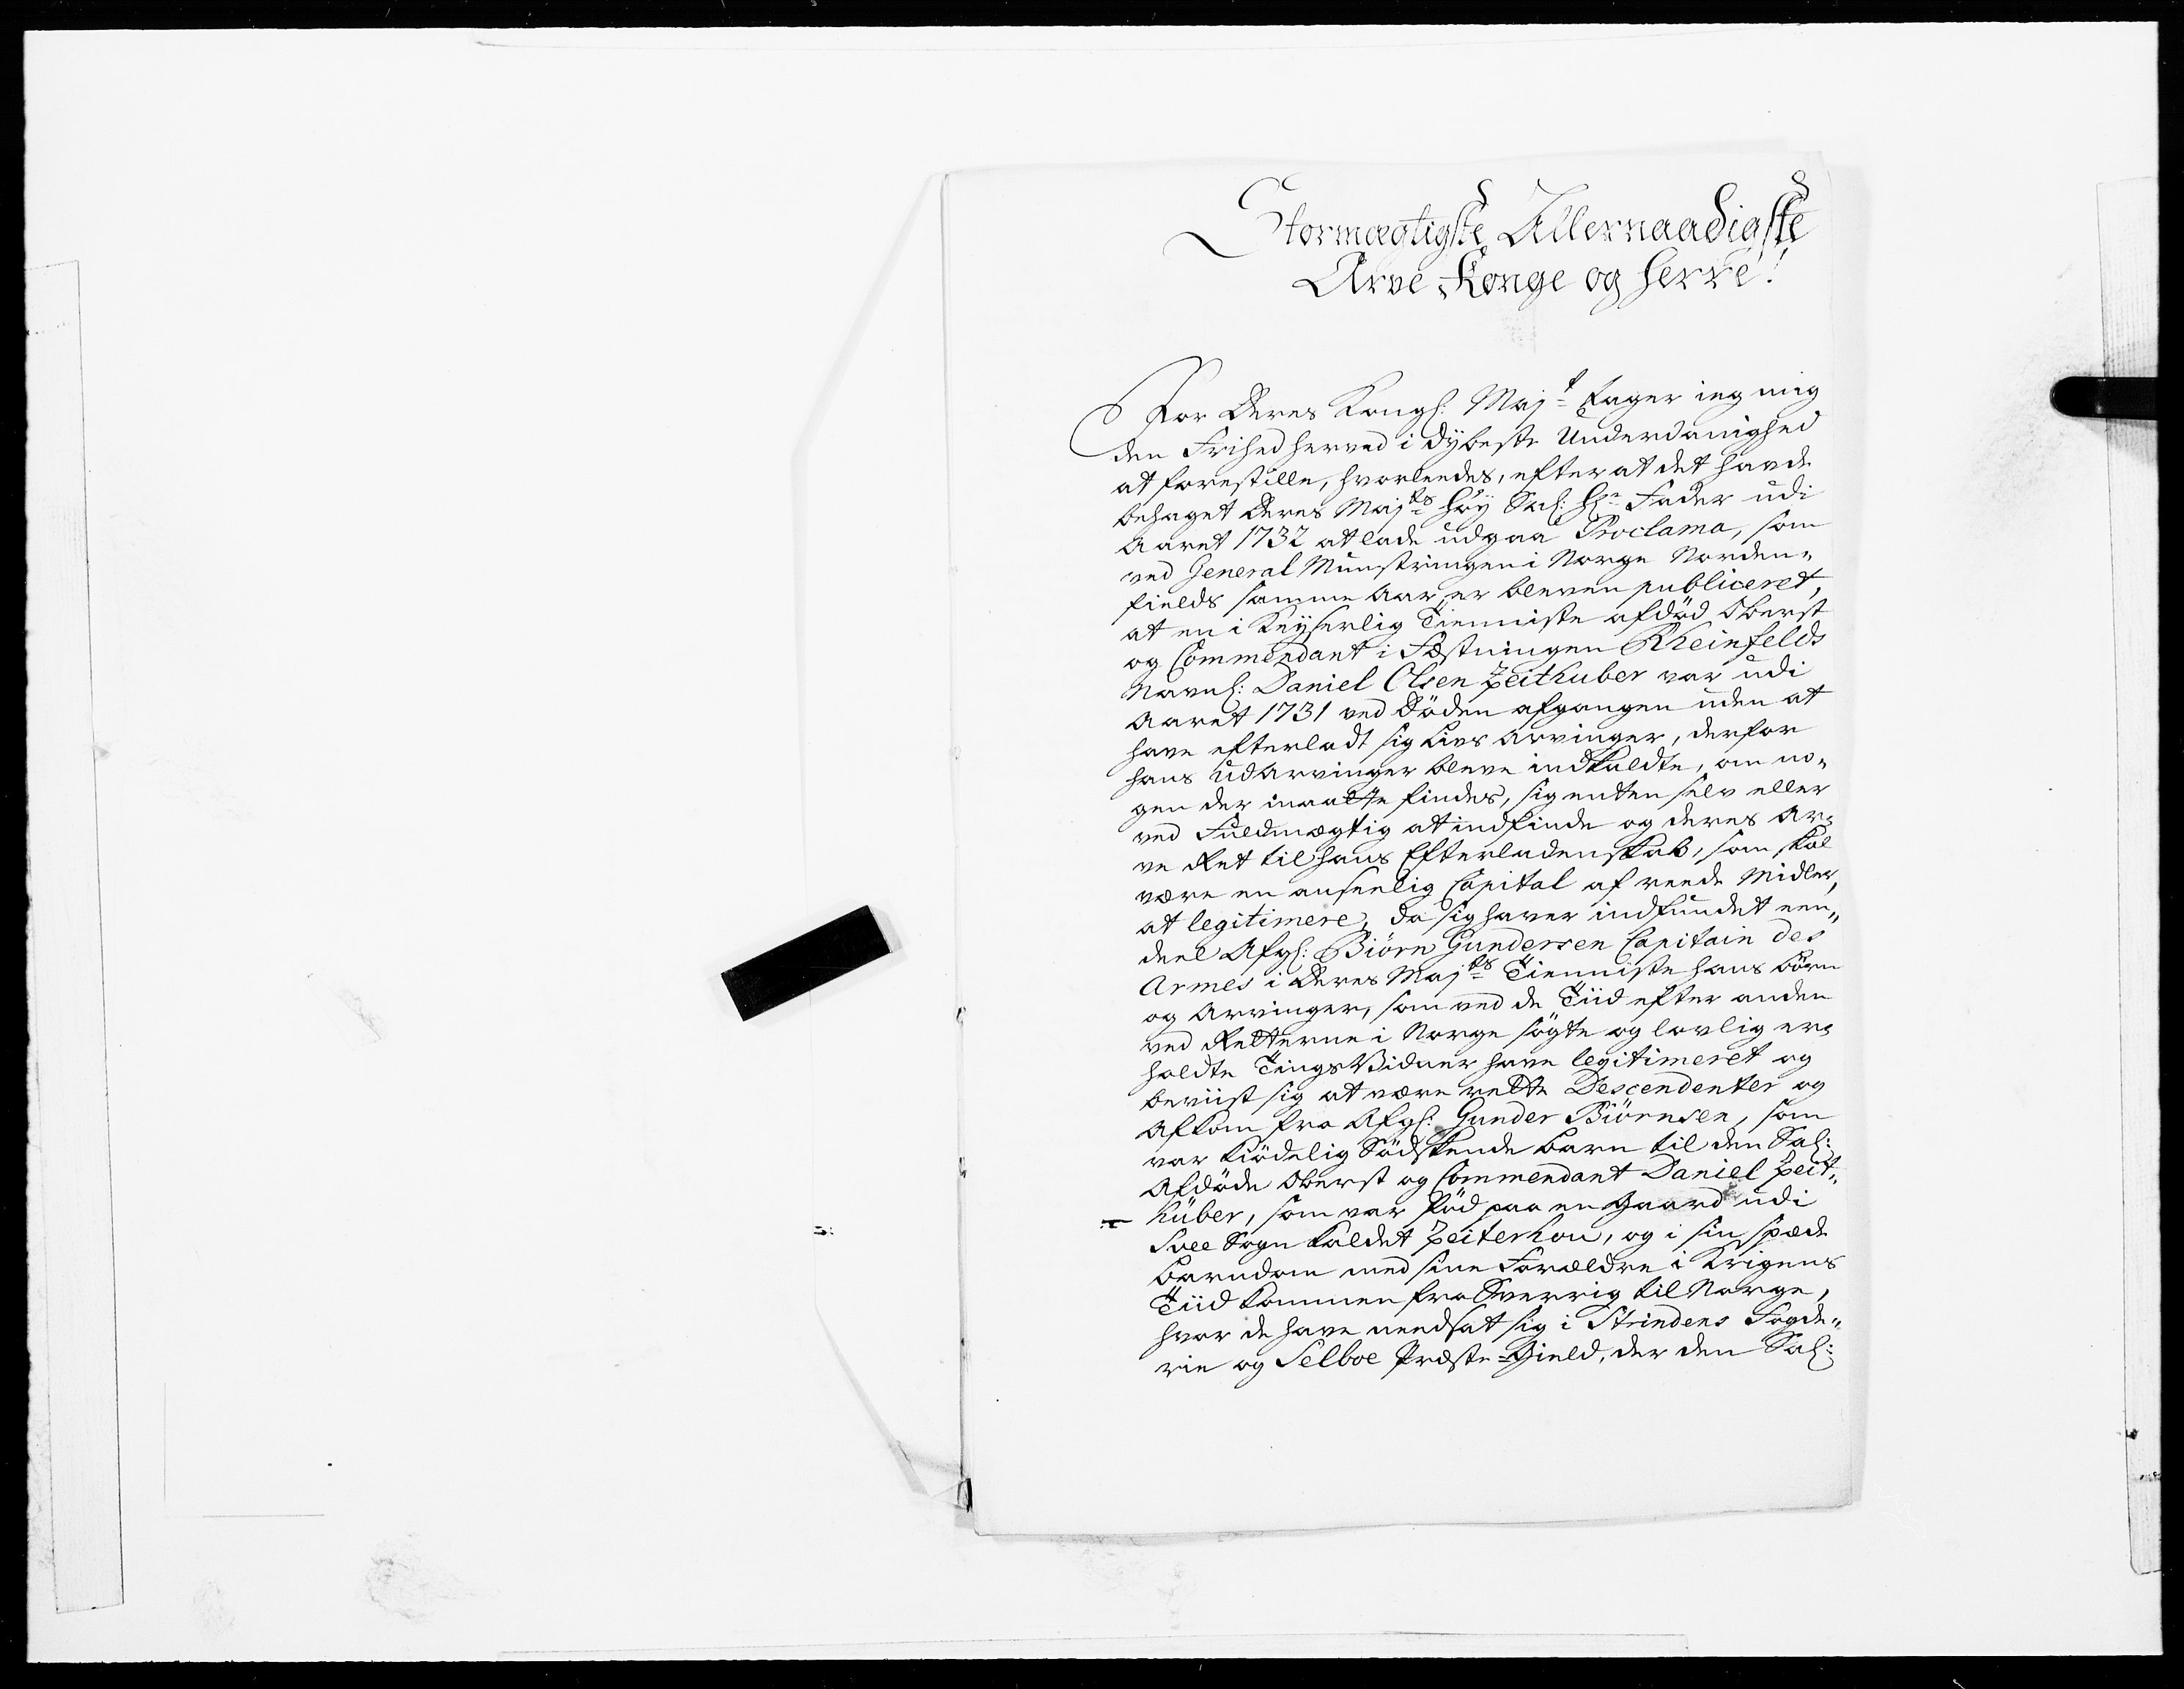 Stormægtigste Allernaadigste
Arve Konge og Herre!
For Deres Kongl: Maj:t tager ieg mig
den Frihed herved i dybeste Underdanighed
at forestille, hvorleedes, efter at det havde
behaget Deres Maj:ts Høy Sal: Hr: Fader udi
Aaret 1732 at lade udgaa Proclama, som
ved General Munstringen i Norge Norden„
fields samme Aar er bleven publiceret,
at en i Keyserlig Tienniste afdød Oberst
og Commendant i Fæstningen Rheinfelds
Navnl: Daniel Olsen Zeithuber var udi
Aaret 1731 ved Døden afgangen uden at
have efterladt sig Livs Arvinger, derfor
hans Udarvinger bleve indkaldte, om no„
gen der maatte findes, sig enten selv eller
ved Fuldmægtig at indfinde og deres Ar„
ve Ret til hans Efterladenskab, som skal
være en anseelig Capital af reede Midler,
at legitimere, da sig haver indfundet een„
deel Afgl: Biørn Gundersen Capitain des
Armes i Deres Maj:ts Tienniste hans Børn
og Arvinger, som ved de Tiid efter anden
ved Retterne i Norge søgte og lovlig er„
holdte TingsVidner have legitimeret og
beviist sig at være rette Descendenter og
Afkom fra Afgl: Gunder Biørnsen, som
var kiødelig Sødskende Barn til den Sal:
Afdøde Oberst og Commendant Daniel Zeit„
huber, som var fød paa en Gaard udi
Svee Sogn kaldet Zeiterhou, og i sin spæde
Barndom med sine Forældre i Krigens
Tiid kommen fra Sverrig til Norge,
hvor de have needsat sig i Strindens Fogde„
rie og Selboe Præste-Gield, der den Sal: